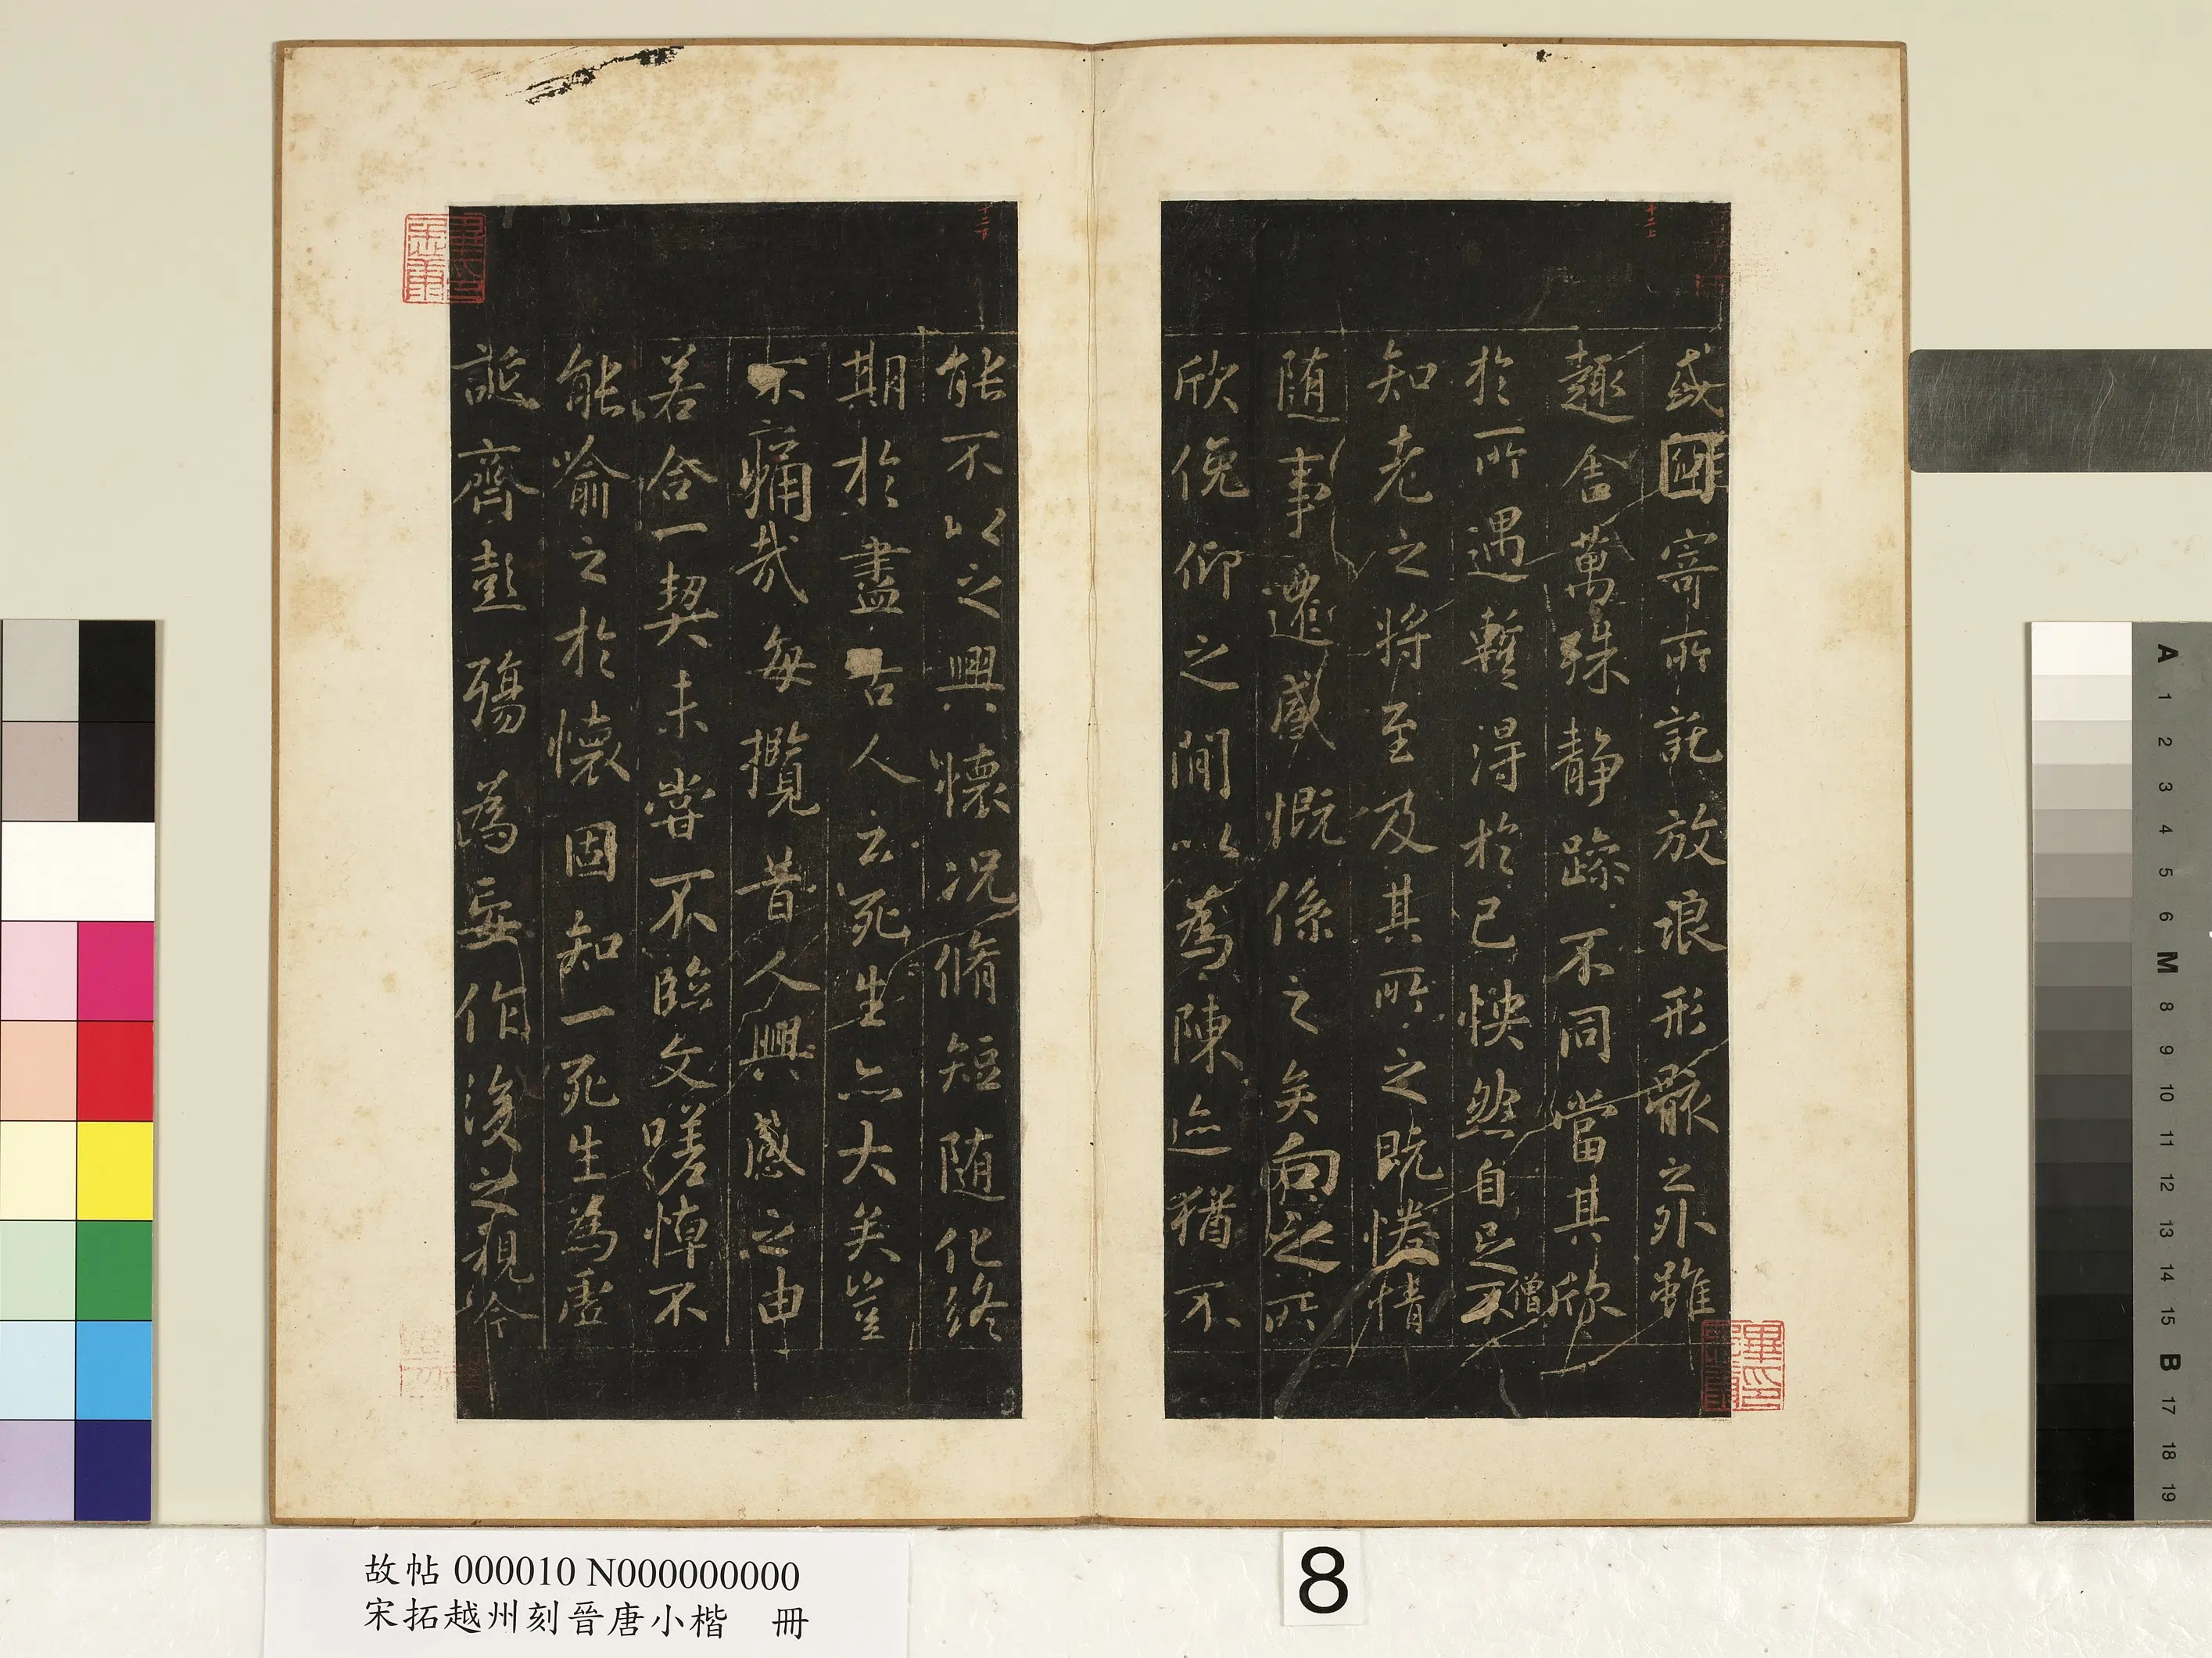 或因寄所託放浪形骸之外雖
趣舎萬殊静躁不同當其欣
於所遇蹔得於己怏然自足不
僧
知老之將至及其所之既惓情
随事遷感慨係之矣向之所
欣俛仰之閒以為陳迹猶不
能不以之興懷况脩短随化終
期於盡古人云死生亦大矣豈
不痛哉每攬昔人興感之由
若合一契未甞不臨文嗟悼不
能喻之於懷固知一死生為虛
誕齊彭殤為妄作後之視今
十二上
十二下
故帖 000010 N000000000
宋拓越州刻晉唐小楷 冊
8
A 1 2 3 4 5 6 M 8 9 10 11 12 13 14 15 B 17 18 19